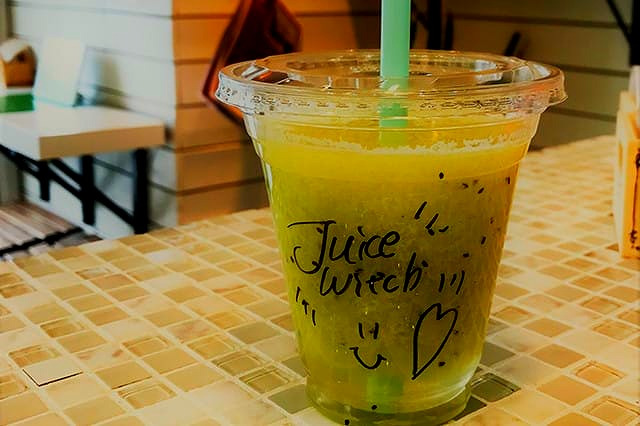 Juice
Wrech